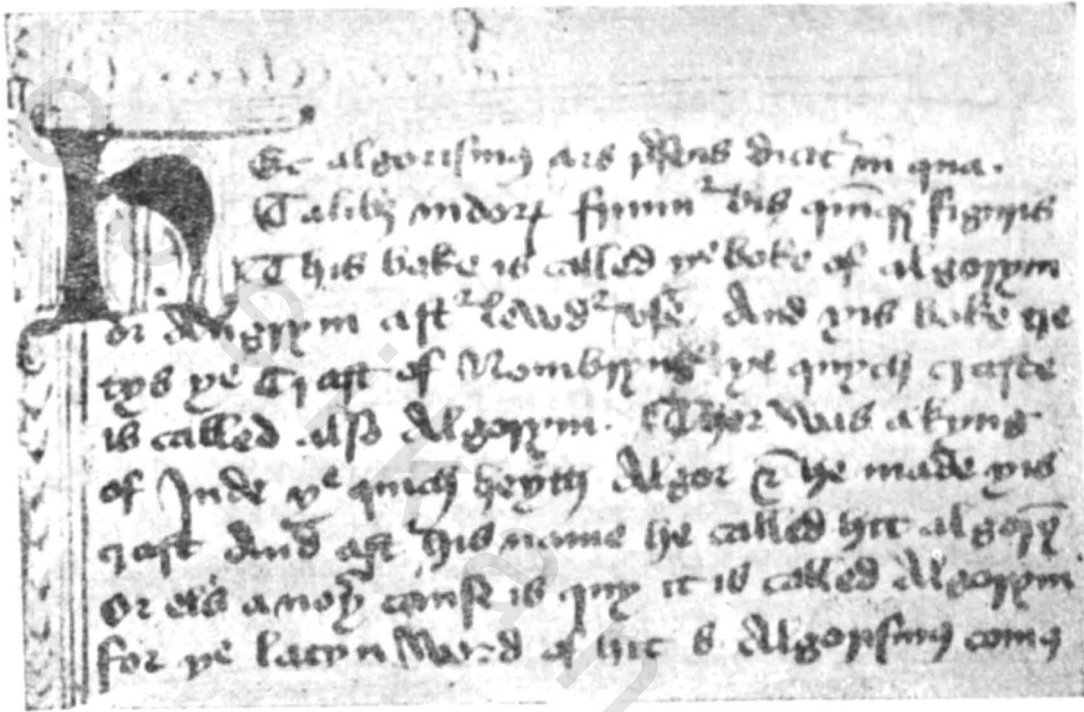 Hec algorismus ars presens dicitur in qua
Talibus indorum fruimur bis quinque figuris
This boke is called þe boke of algorym
or Augrym after lewder vse. And þis boke tre
tys þe Craft of Nombryng þe quych crafte
is called also Algorym. Ther was a kyng
of Inde þe quich heyth Algor & he made þis
craft And aft his name he called hit algorym
or els anoþer cause is quy it is called Algorym
for þe latyn word of hit s Algorismus comes